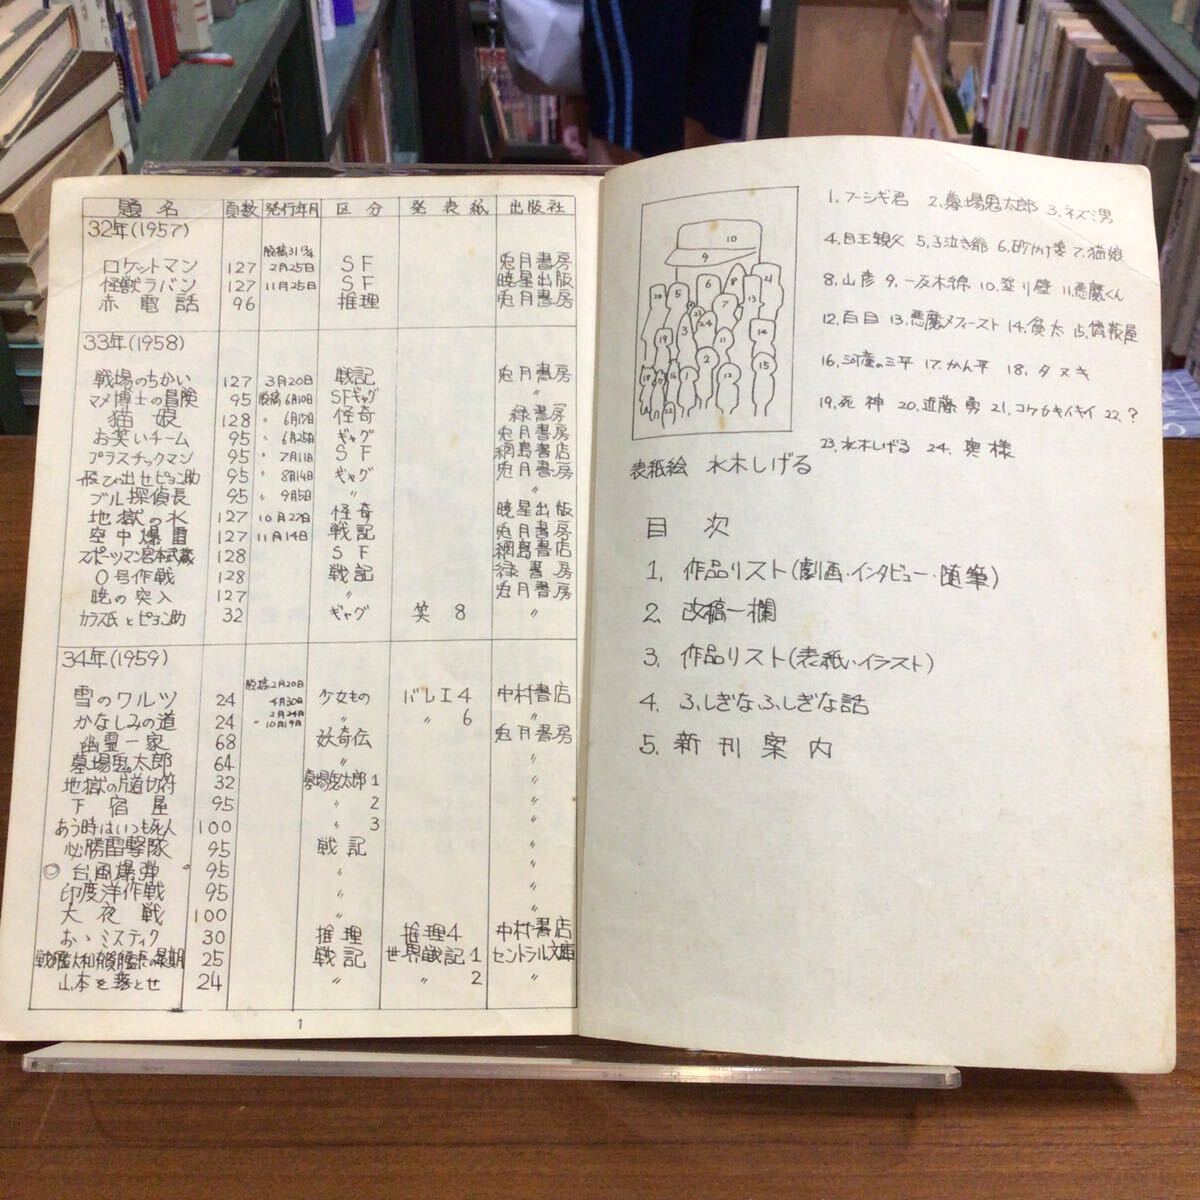 題名 頁数 発行年月 区分 発表紙 出版社
32年(1957)
ロケットマン 127 2月25日 SF 兎月書房
怪獣ラバン 127 11月25日 SF 暁星出版
赤電話 96 推理 兎月書房
33年(1958)
戦場のちかい 127 3月20日 戦記 兎月書房
マメ博士の冒険 95 脱稿6月10日 SFギャグ 〃
猫娘 128 〃 6月17日 怪奇 緑書房
お笑いチーム 95 〃 6月25日 ギャグ 兎月書房
プラスチックマン 95 〃 7月11日 SF 綱島書店
飛び出せピョン助 95 〃 8月14日 ギャグ 兎月書房
ブル探偵長 95 〃 9月5日 〃 〃
地獄の水 127 10月27日 怪奇 暁星出版
空中爆雷 127 11月14日 戦記 兎月書房
スポーツマン宮本武蔵 128 SF 綱島書店
0号作戦 128 戦記 緑書房
暁の突入 127 〃 兎月書房
カラス氏とピョン助 32 ギャグ 笑 8 〃
34年(1959)
脱稿2月20日
雪のワルツ 24 4月30日 少女もの バレエ4 中村書店
2月24日
かなしみの道 24 〃 10月19日 〃 〃 6 〃
幽霊一家 68 妖奇伝 兎月書房
墓場鬼太郎 64 〃 〃
地獄の片道切符 32 墓場鬼太郎1 〃
下宿屋 95 〃 2 〃
あう時はいつも死人 100 〃 3 〃
必勝雷撃隊 95 戦記 〃
台風爆弾 95 〃 〃
印度洋作戦 95 〃 〃
大夜戦 100 〃 〃
おゝミスティク 30 推理 推理4 中村書店
戦艦大和有賀艦長の最期 25 戦記 世界戦記1 セントラル文庫
山本を落とせ 24 〃 〃 2 〃
1
1. フーシギ君 2. 墓場鬼太郎 3. ネズミ男
4. 目玉親父 5. 子泣き爺 6. 砂かけ婆 7. 猫娘
8. 山彦 9. 一反木綿 10. 塗り壁 11. 悪魔くん
12. 百目 13. 悪魔メフィースト 14. 貧太 15.
16. 河童の三平 17. かん平 18. タヌキ
19. 死神 20. 近藤勇 21. コケカキイキイ 22. ?
23. 水木しげる 24. 奥様
表紙絵 水木しげる
目次
1. 作品リスト(劇画・インタビュー・随筆)
2. 改稿一欄
3. 作品リスト(表紙・イラスト)
4. ふしぎなふしぎな話
5. 新刊案内